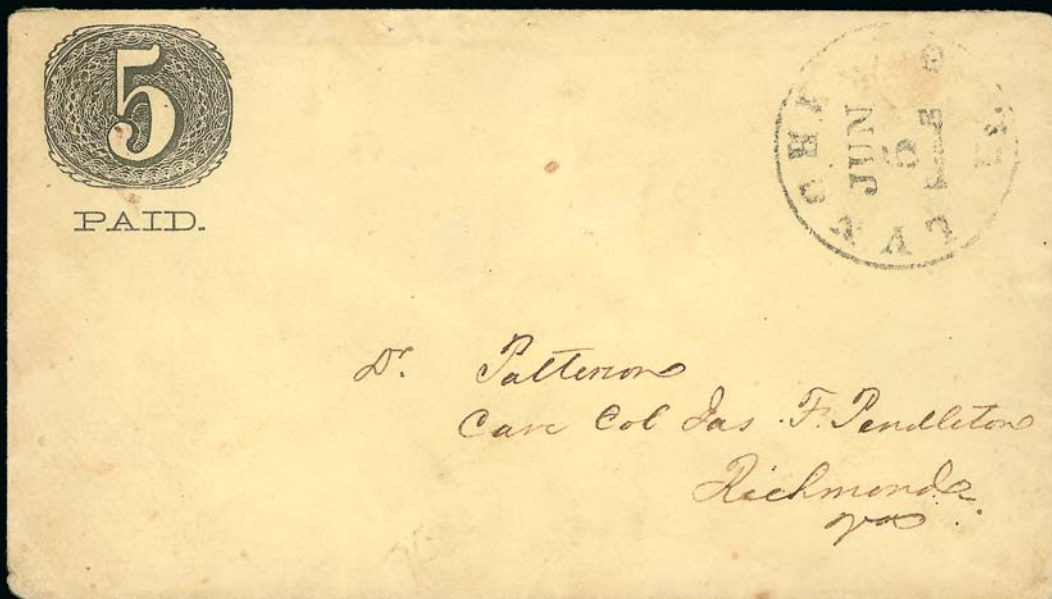 5
PAID.
JUN
Dr. Patterson
Care Col Jas. F. Pendleton
Richmond
Va